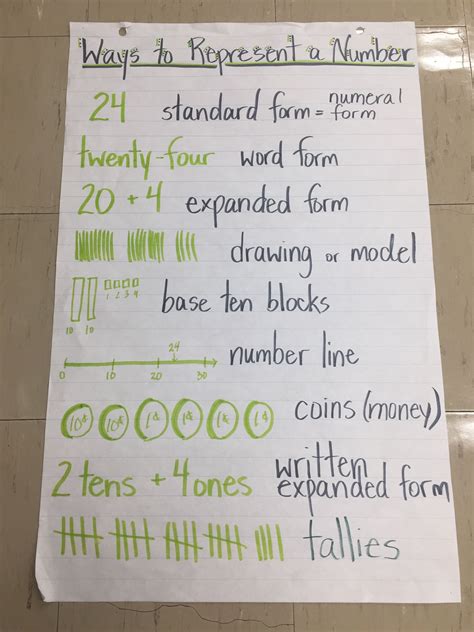 Ways to Represent a Number
24 standard form = numeral form
twenty-four word form
20 + 4 expanded form
drawing or model
1 2 3 4
10 10 base ten blocks
24
number line
0 10 20 30
10¢ 10¢ 1¢ 1¢ 1¢ 1¢ coins (money)
2 tens + 4 ones written expanded form
tallies